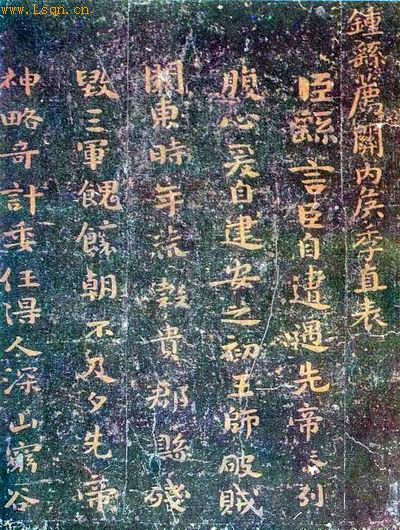 www.Lsqn.cn
鍾繇薦關內侯季直表
臣繇言臣自遭遇先帝忝列
腹心爰自建安之初王師破賊
關東時年荒穀貴郡縣殘
毀三軍餽饟朝不及夕先帝
神略奇計委任得人深山窮谷